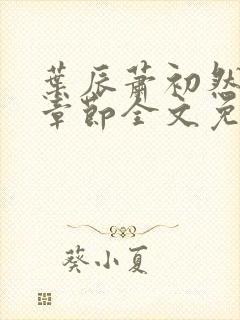 葉辰蕭初然
章節全文免
葵小夏